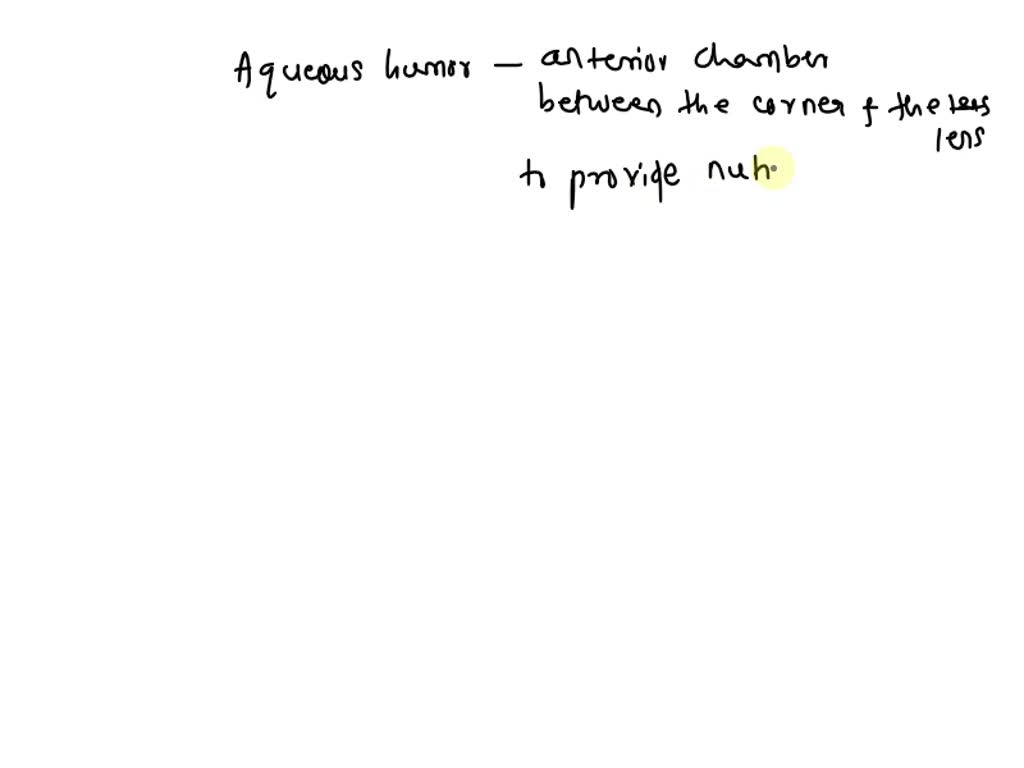 Aqueous humor — anterior chamber
between the corner & the lens
lens
to provide nut